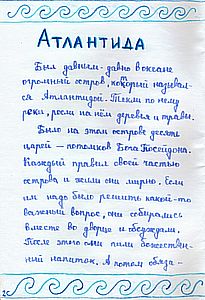 АТЛАНТИДА
Был давным-давно в океане
огромный остров, который называл-
ся Атлантидой. Текли по нему
реки, росли на нём деревья и травы.
Было на этом острове десять
царей – потомков Бога Посейдона.
Каждый правил своей частью
острова и жили они мирно. Если
им надо было решить какой-то
важный вопрос, они собирались
вместе во дворце и обсуждали.
После этого они пили божествен-
ный напиток. А потом обяза-
2